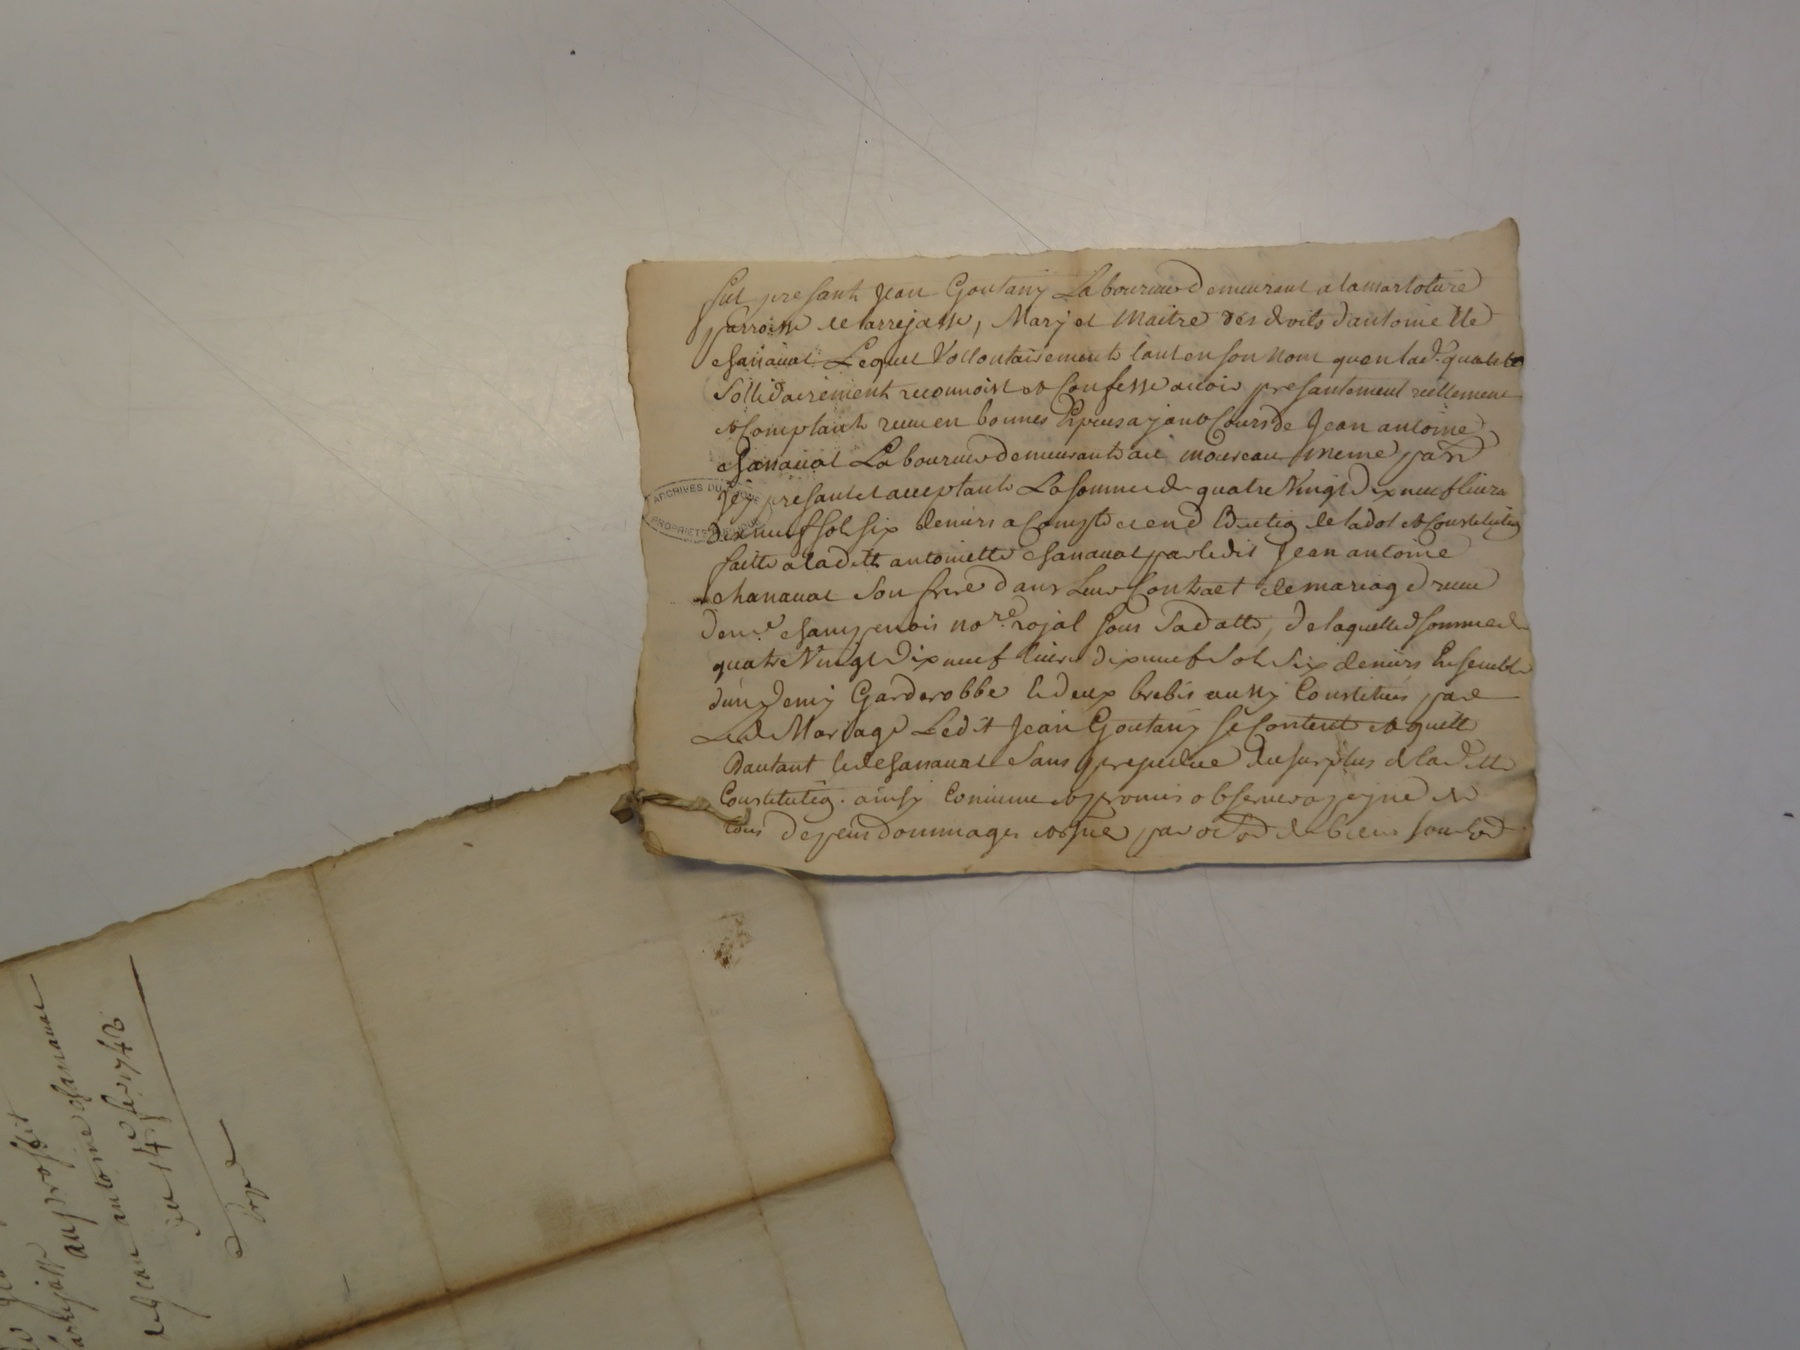 fut presant Jean Goutany Laboureur demeurant a lamartoture
parroisse de larrejasse, Mary et Maitre des droits dantoinette
chanauat Lequel Vollontairement tant en son nom quen lad. qualité
Sollidairement reconnoist et Confesse auoir presantement reellement
et Comptant receu en bonnes Espeus ayant Cours de Jean antoine
chanauat Laboureur demeurant au mème parr
jcy presant et acceptant La somme de quatre Vingt dix neuf liures
dix neuf sol six deniers a Compte et end de ladot et Constitution
faitte a laditte antoinette chanauat par ledit Jean antoine
chanauat Son frere dans Leur Contract de mariage receu
de me champenois nore royal sous Sadatte, de laquelle somme de
quatre Vingt dix neuf liures dix neuf sol six deniers Ensemble
dun demy Garderobbe et deux brebis aussy Constitués par
Led Mariage Ledit Jean Goutany se Contente et quitte
dautant led chanauat Sans prejudice du surplus de laditte
Constitution. ainsy Conuenu et promis obseruer a peyne de
tous depens dommages et par de biens
ARCHIVES DU
PROPRIETE PUBLIQUE
au proffit
de Jean antoine chanauat
du 14e 1742